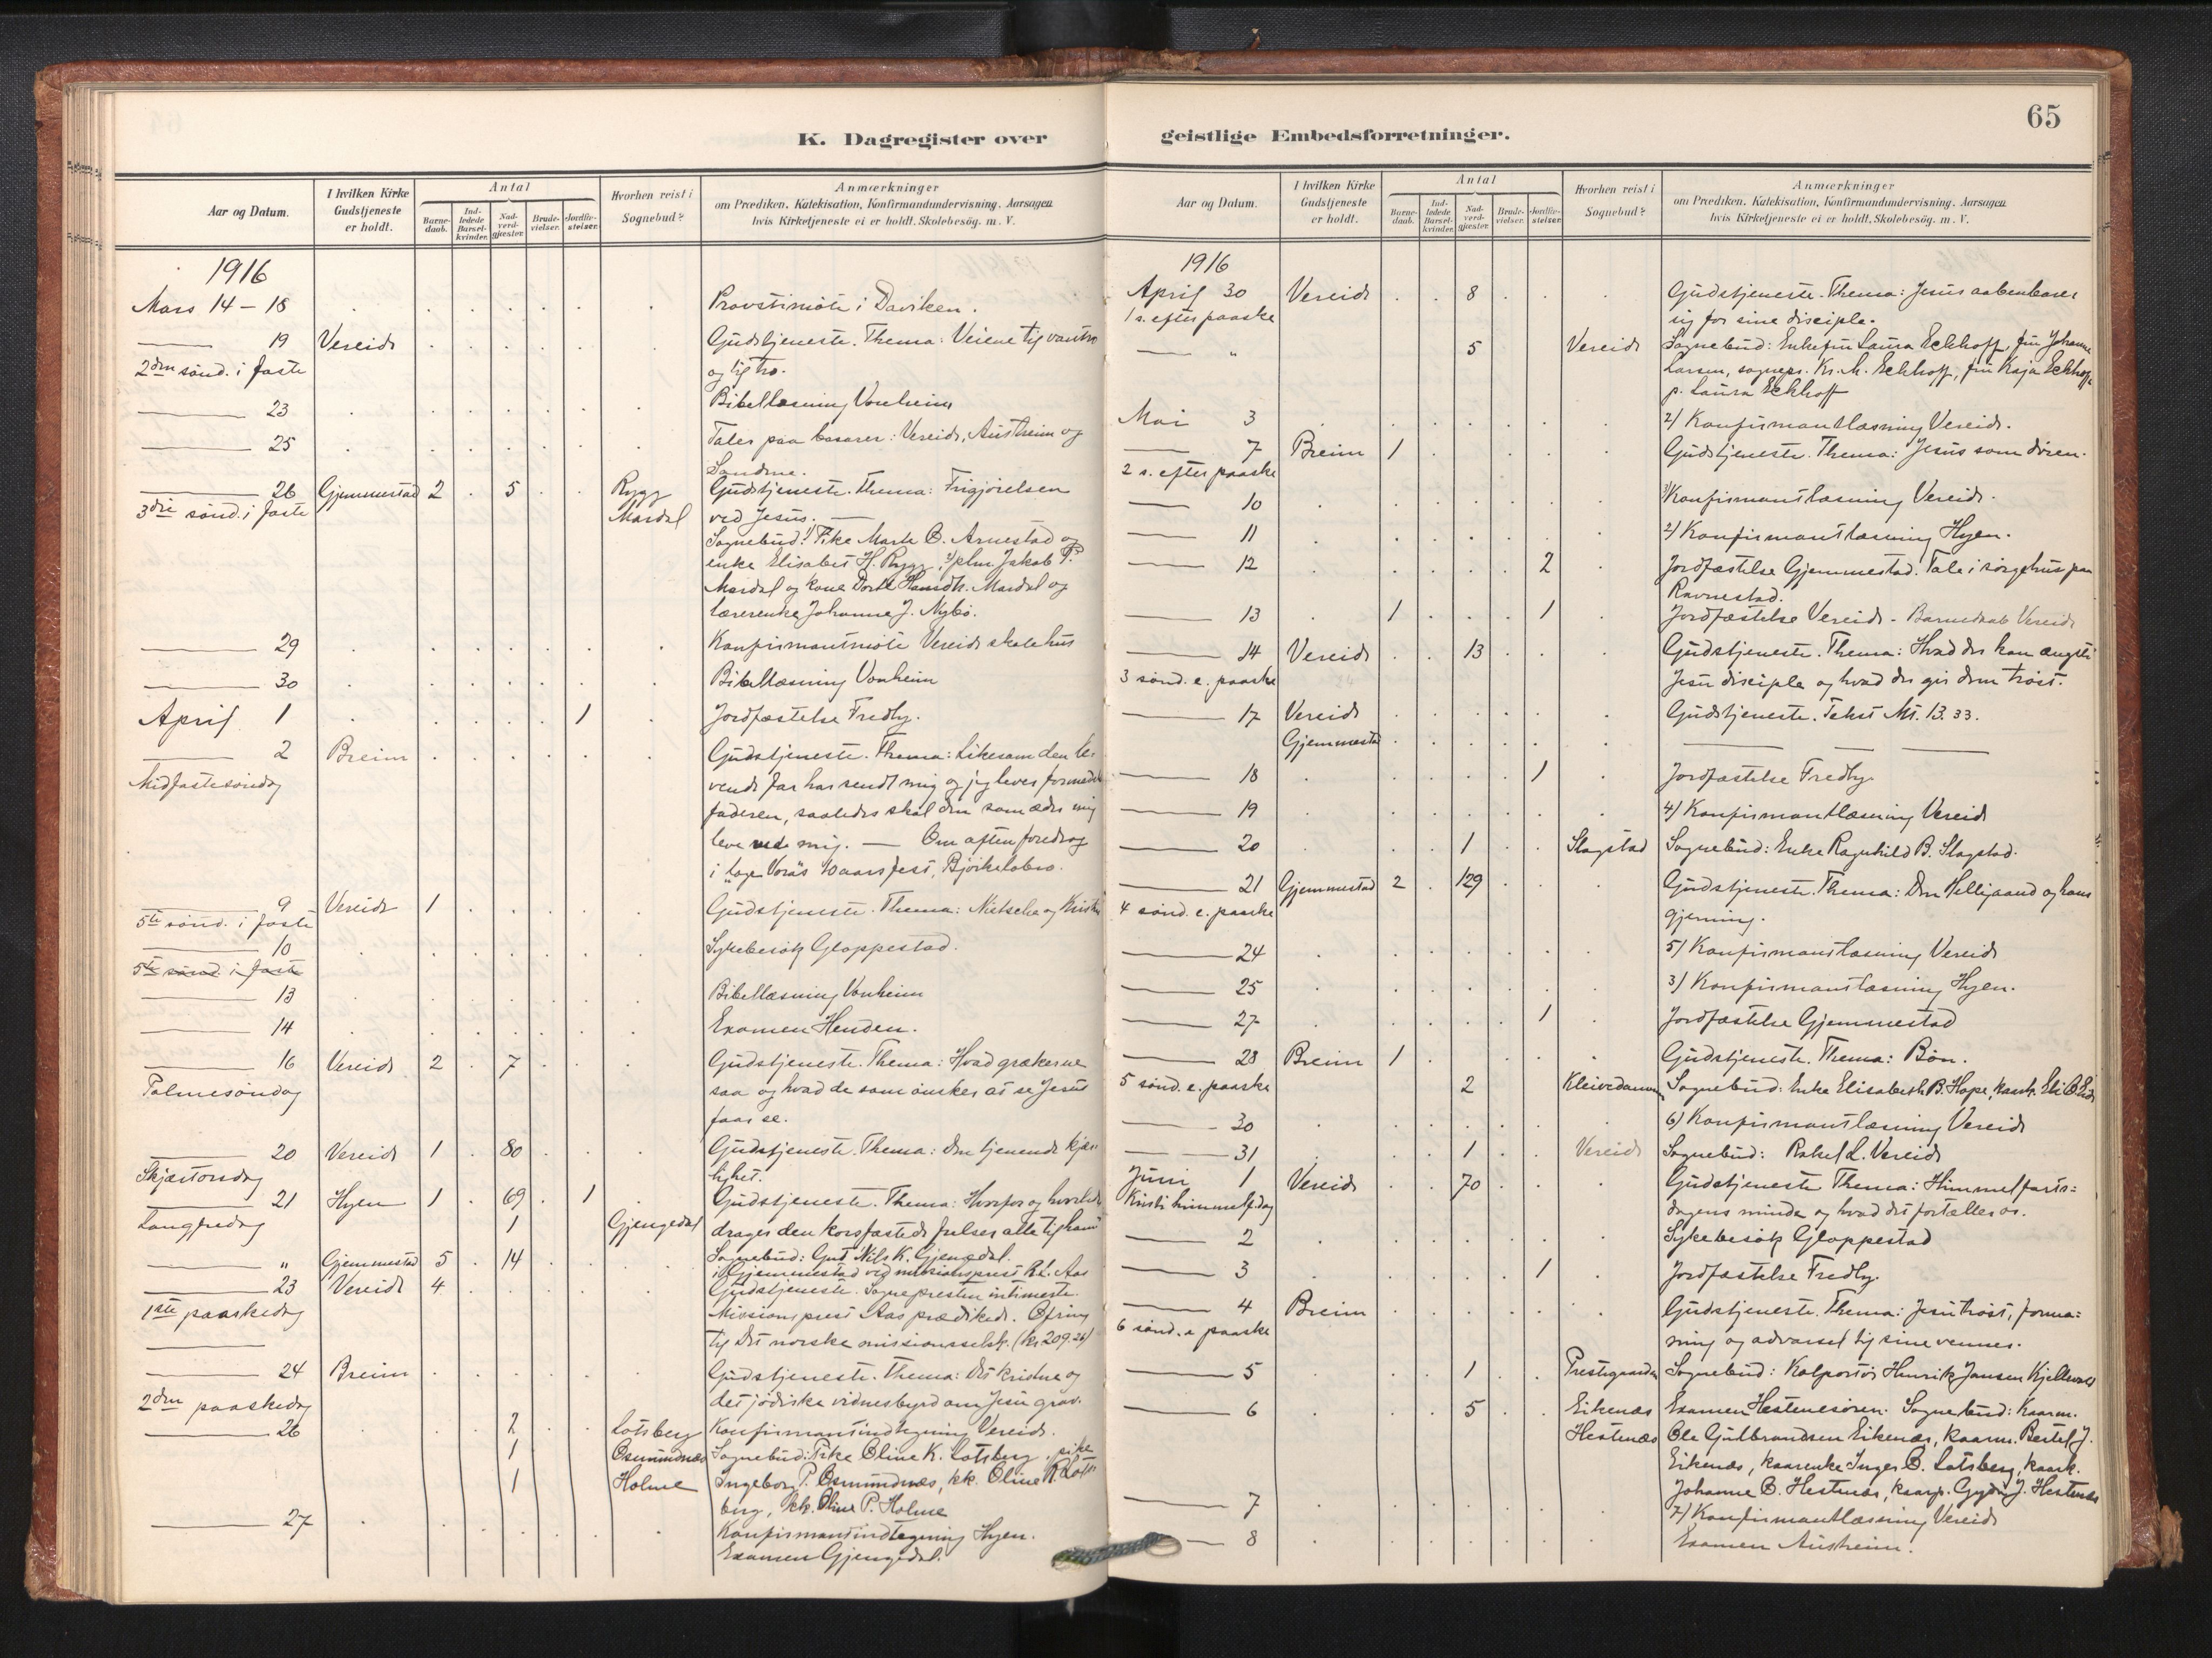 K. Dagregister over
Aar og Datum.
I hvilken Kirke Gudstjeneste er holdt.
Antal
Barnedaab.
Indledede Barselkvinder.
Nadverdgjæster.
Brudevielser.
Jordfæstelser.
Hvorhen reist i Sognebud?
Anmærkninger
om Prædiken, Katekisation, Konfirmandundervisning, Aarsagen
hvis Kirketjeneste ei er holdt. Skolebesög. m. V.
1916
Mars 14 – 18 Provstimöte i Daviken.
19 Vereide Gudstjeneste. Thema: Veiene til vantro
2den sönd. i faste og til tro.
23 Bibellæsning Vonheim
25 Taler paa basarer: Vereide, Austreim og
Sandene.
26 Gjemmestad 2 5 Rygg Gudstjeneste. Thema: Frigjörelsen
3die sönd. i faste Mardal ved Jesus. —
Sognebud: 1) Pike Marte B. Arnestad og
enke Elisabet H. Rygg, 2) plm Jakob P.
Mardal og kone Dorte Mardal og
lærerenke Johanne J. Nybö.
29 Konfirmantmöte Vereide skolehus
30 Bibellæsning Vonheim
April 1 1 Jordfæstelse Fredby.
2 Breim Gudstjeneste. Thema: Likesom den le-
Midfastesöndag vende far har sendt mig og jeg lever formedelst
faderen, saaledes skal den som æder mig
leve ved mig. — Om aften foredrag
i "loge Vors" 10 aarsfest, Björkelobro.
9 Vereide 1 Gudstjeneste. Thema: Nietsche og Kristus
5te sönd. i faste
10 Sykebesök Gloppestad.
5te sönd. i faste
13 Bibellæsning Vonheim
14 Examen Henden.
16 Vereide 2 7 Gudstjeneste. Thema: Hvad grækerne
Palmesöndag saa og hvad de som önsker at se Jesus
faar se.
20 Vereide 1 80 Gudstjeneste. Thema: Den tjenende kjær-
Skjærtorsdag lighet.
21 Hyen 1 69 1 Gudstjeneste. Thema: Hvorfor og hvorledes
Langfredag 1 Gjengedal drager den korsfæstede frelser alle til ham
Sognebud: Gut Nils K. Gjengedal.
" Gjemmestad 5 14 i Gjemmestad ved missionsprest Aas
23 Vereide 4 Gudstjeneste. Sognepresten intimerte.
1ste paaskedag Missionsprest Aas prædikede. Ofring
til Det norske missionsselsk. (kr 209.26)
24 Breim Gudstjeneste. Thema: Det kristne og
2den paaskedag det jödiske vidnesbyrd om Jesu grav.
26 2 Lotsberg Konfirmantindtegning Vereide.
1 Osmundnæs Sognebud: Pike Oline K. Lotsberg, pike
1 Holme Ingeborg P. Osmundnæs, kk. Oline R. Lots-
berg, kk. Oline P. Holme
27 Konfirmantindtegning Hyen.
Examen Gjengedal.
geistlige Embedsforretninger.
65
Aar og Datum.
I hvilken Kirke Gudstjeneste er holdt.
Antal
Barnedaab.
Indledede Barselkvinder.
Nadverdgjæster.
Brudevielser.
Jordfæstelser.
Hvorhen reist i Sognebud?
Anmærkninger
om Prædiken, Katekisation, Konfirmandundervisning, Aarsagen
hvis Kirketjeneste ei er holdt. Skolebesög. m. V.
1916
April 30 Vereide 8 Gudstjeneste. Thema: Jesus aabenbarer
1 s. efter paaske sig for sine disciple.
" 5 Vereide Sognebud: Enkefru Laura Eckhoff, fru Johanne
Larsen, sognepr. Kr. M. Eckhoff, fru Kaja Eckhoff
p. Laura Eckhoff
Mai 3 2) Konfirmantlæsning Vereide.
7 Breim 1 Gudstjeneste. Thema: Jesus som dören.
2 s. efter paaske
10 Konfirmantlæsning Vereide.
11 2) Konfirmantlæsning Hyen.
12 2 Jordfæstelse Gjemmestad. Tale i sörgehus paa
Ravnestad.
13 1 1 Jordfæstelse Vereide – Barnedaab Vereide
14 Vereide 13 Gudstjeneste. Thema: Hvad der kan ængste
3 sönd. e. paaske Jesu disciple og hvad der gir dem tröst.
17 Vereide Gudstjeneste. Tekst Mt. 13. 33.
Gjemmestad
18 1 Jordfæstelse Fredby.
19 4) Konfirmantlæsning Vereide
20 1 Slagstad Sognebud: Enke Ragnhild B. Slagstad.
21 Gjemmestad 2 129 Gudstjeneste. Thema: Den Helligaand og hans
4 sönd. e. paaske gjerning.
24 5) Konfirmantlæsning Vereide
25 3) Konfirmantlæsning Hyen.
27 1 Jordfæstelse Gjemmestad
28 Breim 1 Gudstjeneste. Thema: Bön.
5 sönd. e. paaske 2 Sognebud: Enke Elisabeth B. Hope,
30 6) Konfirmantlæsning Vereide
31 1 Vereide Sognebud: Rakel L. Vereide
Juni 1 Vereide 70 Gudstjeneste Thema: Himmelfarts=
Kristi himmelf.dag dagens minde og hvad det fortæller os.
2 Sykebesök Gloppestad
3 1 Jordfæstelse Fredby.
4 Breim Gudstjeneste. Thema: Jesu tröst, forma=
6 sönd. e paaske ning og advarsel til sine venner.
5 1 Prestegaarden Sognebud: Kolportör Henrik Jansen
6 5 Eikenæs Examen Hestenesören. Sognebud: Kaarm.
Hestenæs Ole Gulbrandsen Eikenæs, kaarm. Bertel J.
Eikenæs, kaarenke Inger B. Lotsberg, kaark.
Johanne B. Hestenæs, kaarp. Gyda J. Hestenæs
7 7) Konfirmantlæsning Vereide
8 Examen Austreim.